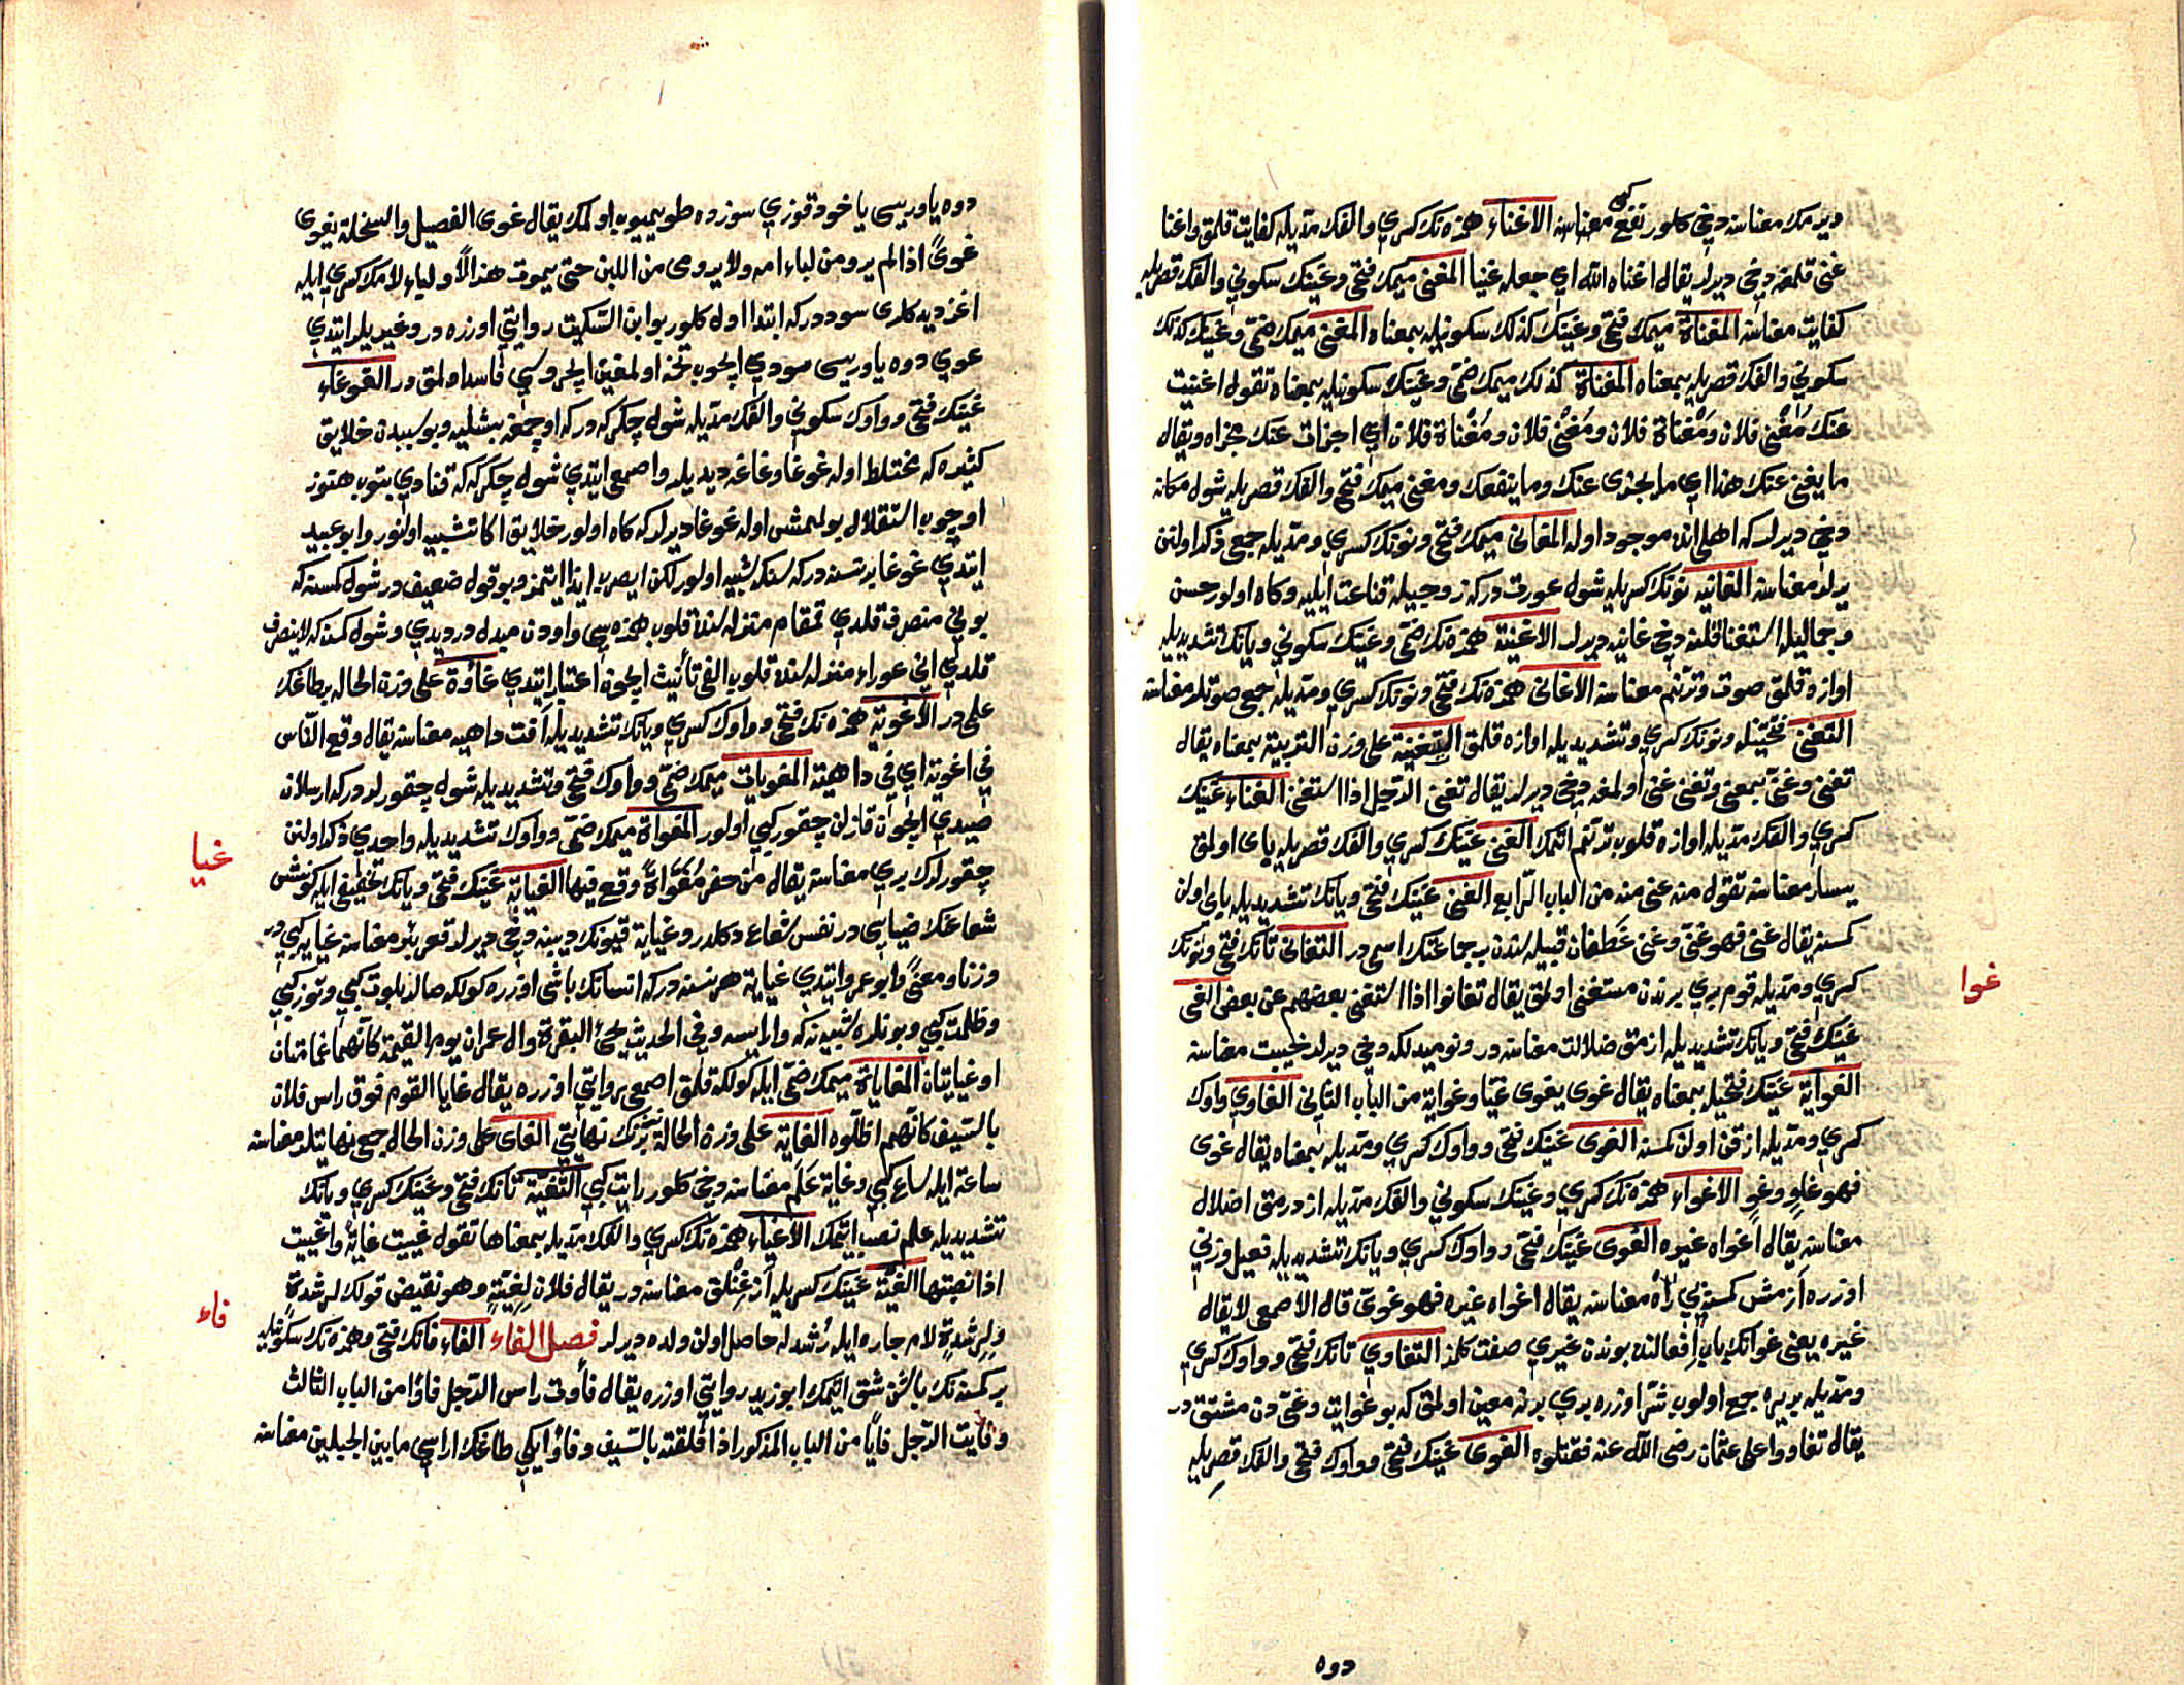 ديرمك معناسنه دخي كلور نفع كبي معناسنه الاغناء همزه نك كسري والفك مديله كفايت قلمق واغنا
غني قلمغه دخي ديرلر يقال اغناه الله اي جعله غنيا المغني ميمك فتحي وغينك سكوني والفك قصريله
كفايت معناسنه المغناة ميمك فتحي وغينك كذلك سكونيله بمعناه المغني ميمك ضمي وغينك كذلك
سكوني والفك قصريله بمعناه المغناة كذلك ميمك ضمي وغينك سكونيله بمعناه تقول اغنيت
عنك مُغْنى فلان ومَغْناة فلان ومَغْنى فلان ومُغْناة فلان اي اجزات عنك مجزاه ويقال
ما يغني عنك هذا اي ما يجزى عنك وما ينفعك ومغنى ميمك فتحي والفك قصريله شول مكانه
دخي ديرلر كه اهلي انده موجود اوله المغاني ميمك فتحي ونونك كسري ومديله جمعي ذكر اولنن
يرلر معناسنه الغانيه نونك كسريله شول عورت در كه زوجيله قناعت ايليه وكاه اولور حسن
وجماليله استغنا قلنه دخي غانيه ديرلر الاغنية همزه نك ضمي وغينك سكوني ويانك تشديديله
اواز وقلمق صوت وترنم معناسنه الاغاني همزه نك فتحي ونونك كسري ومديله جمعي صوتلر معناسنه
التغني فتحتينله ونونك كسري وتشديديله اوازه قلمق التغنية على وزن التربية بمعناه يقال
تغنى وغنى بمعنى وتغنى غني اولمغه دخي ديرلر يقال تغنى الرجل اذا استغنى الغناء غينك
كسري والفك مديله اوازه قلوب ترنم اتمك الغنى غينك كسري والفك قصريله باى اولمق
يسار معناسنه تقول منه غني منه من الباب الرابع الغني غينك فتحي ويانك تشديديله باى اولن
كمسنه يقال غني فهو غني وغني غطفان قبيله سندن بر جماعتك اسمي در التغاني تانك فتحي ونونك
كسري ومديله قوم بري برندن مستغني اولمق يقال تغانوا اذا استغنى بعضهم عن بعض الغي
غينك فتحي ويانك تشديديله ازمق ضلالت معناسنه در ونوميدلكه دخي ديرلر خيبت معناسنه
الغواية غينك فتحيله بمعناه يقال غوى يغوى غيا وغواية من الباب الثاني الغاوي واوك
كسري ومديله ازقن اولن كمسنه الغوى غينك فتحي وواوك كسري ومديله بمعناه يقال غوى
فهو غاوٍ وغوٍ الاغواء همزه نك كسري وغينك سكوني والفك مديله ازدرمق اضلال
معناسنه يقال اغواه غيره الغوى غينك فتحي وواوك كسري ويانك تشديديله فعيل وزني
اوزره ازمش كمسنه يي معناسنه يقال اغواه غيره فهو غوي قال الاصمعي لا يقال
غيره يعني غوانك باب افعالنده بوندن غيري صفت كلمز التغاوي تانك فتحي وواوك كسري
ومديله بر يره جمع اولوب شر اوزره بري برنه معين اولمق كه بو غوايت وغي دن مشتق در
يقال تغاووا على عثمان رضى الله عنه فقتلوه الغوى غينك فتحي وواوك فتحي والفك قصريله
دوه
غوا
دوه ياوريسى ياخود قوزي سوزده طويميوب اولمك يقال غوى الفصيل والسخلة يغوى
غوىً اذا لم يرو من لباء امه ولا يروى من اللبن حتى يموت هذا الاول ولباء لامك كسري ايله
اغز ديدكلرى سوددر كه ابتدا اول كلور بو ابن السكيت روايتي اوزره در وغيريلر ايتدي
غوي دوه ياوريسى سودي ايچوب تخمه اولمغين ايچروسي فاسد اولمق در الغوغاء
غينك فتحي وواوك سكوني والفك مديله شول چكركه در كه اوچمغه بشليه وبو سببدن خلايق
كثيره كه مختلط اوله غوغا وغاغه ديديلر واصمعي ايتدي شول چكركه كه قنادي بتوب هنوز
اوچوب استقلال بولممش اوله غوغا ديرلر كه كاه اولور خلايق اكا تشبيه اولنور وابو عبيد
ايتدي غوغا بر نسنه در كه سنكه شبيه اولور لكن ايصرب ايذا ايتمز وبو قول ضعيف در شول كمسنه كه
بوني منصرف قلدي قمقام منزله سنده قلوب همزه سي واودن مبدل در ديدي وشول كمسنه كه لا ينصرف
قلدي اني عوراء منزله سنده قلوب الفي تأنيث ايچون اعتبار ايتدي غاوة على وزن الحاله بر طاغك
علمي در الاغوية همزه نك فتحي وواوك كسري ويانك تشديديله افت داهيه معناسنه يقال وقع الناس
في اغوية اي في داهية المغويات ميمك ضمي وواوك فتحي وتشديديله شول چقورلر در كه ارسلان
صيدي ايچون قازلن چقور كبي اولور المغواة ميمك ضمي وواوك تشديديله واحدي ذكر اولنن
چقورلرك بري معناسنه يقال من حفر مُغَوَّاةً وقع فيها الغياية غينك فتحي ويانك تخفيفي ايله كونشى
شعاعنك ضياسى در نفس شعاع دكلدر وغياية قيونك ديبنه دخي ديرلر قعر بئر معناسنه غيابه كبي در
وزنا ومعنىً وابو عمرو ايتدي غياية هر نسنه در كه انسانك باشى اوزره كولكه صالر بلوت كبي وتوز كبي
وظلمت كبي وبونلره شبيه نه كه وارايسه وفي الحديث يجئ البقرة وال عمران يوم القيمة كانهما غمامتان
او غيايتان المغاياة ميمك ضمي ايله كولكه قلمق اصمعي روايتي اوزره يقال غايا القوم فوق راس فلان
بالسيف كانهم اظلوه الغاية على وزن الحالة نسنه نك نهايتي الغاى على وزن الحال جمعي نهايتلر معناسنه
ساعة ايله ساع كبي وغاية علم معناسنه دخي كلور رايت كبي التغية تانك فتحي وغينك كسري ويانك
تشديديله علم نصب ايتمك الاغياء همزه نك كسري والفك مديله بمعناها تقول غييت غاية واغييت
اذا نصبتها الغية غينك كسريله ازغنلق معناسنه در يقال فلان لِغِيَّةٍ وهو نقيض قولك لرشدة
ولرشدة لام جاره ايله رشدله حاصل اولن ولده ديرلر فصل الفاء الفاء فانك فتحي وهمزه نك سكونيله
بر كمسنه نك باشن شق ايتمك ابو زيد روايتي اوزره يقال فأوت راس الرجل فاوًا من الباب الثالث
وفايت الرجل فايًا من الباب المذكور اذا فلقته بالسيف وفاو ايكي طاغك اراسي ما بين الجبلين معناسنه
غيا
فاء